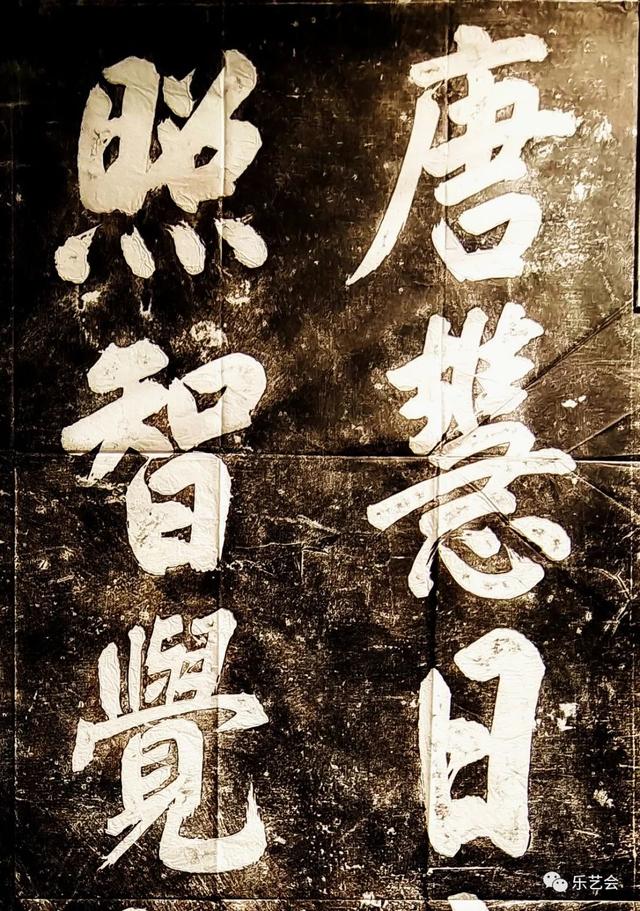 唐慧日
照智覺
乐艺会